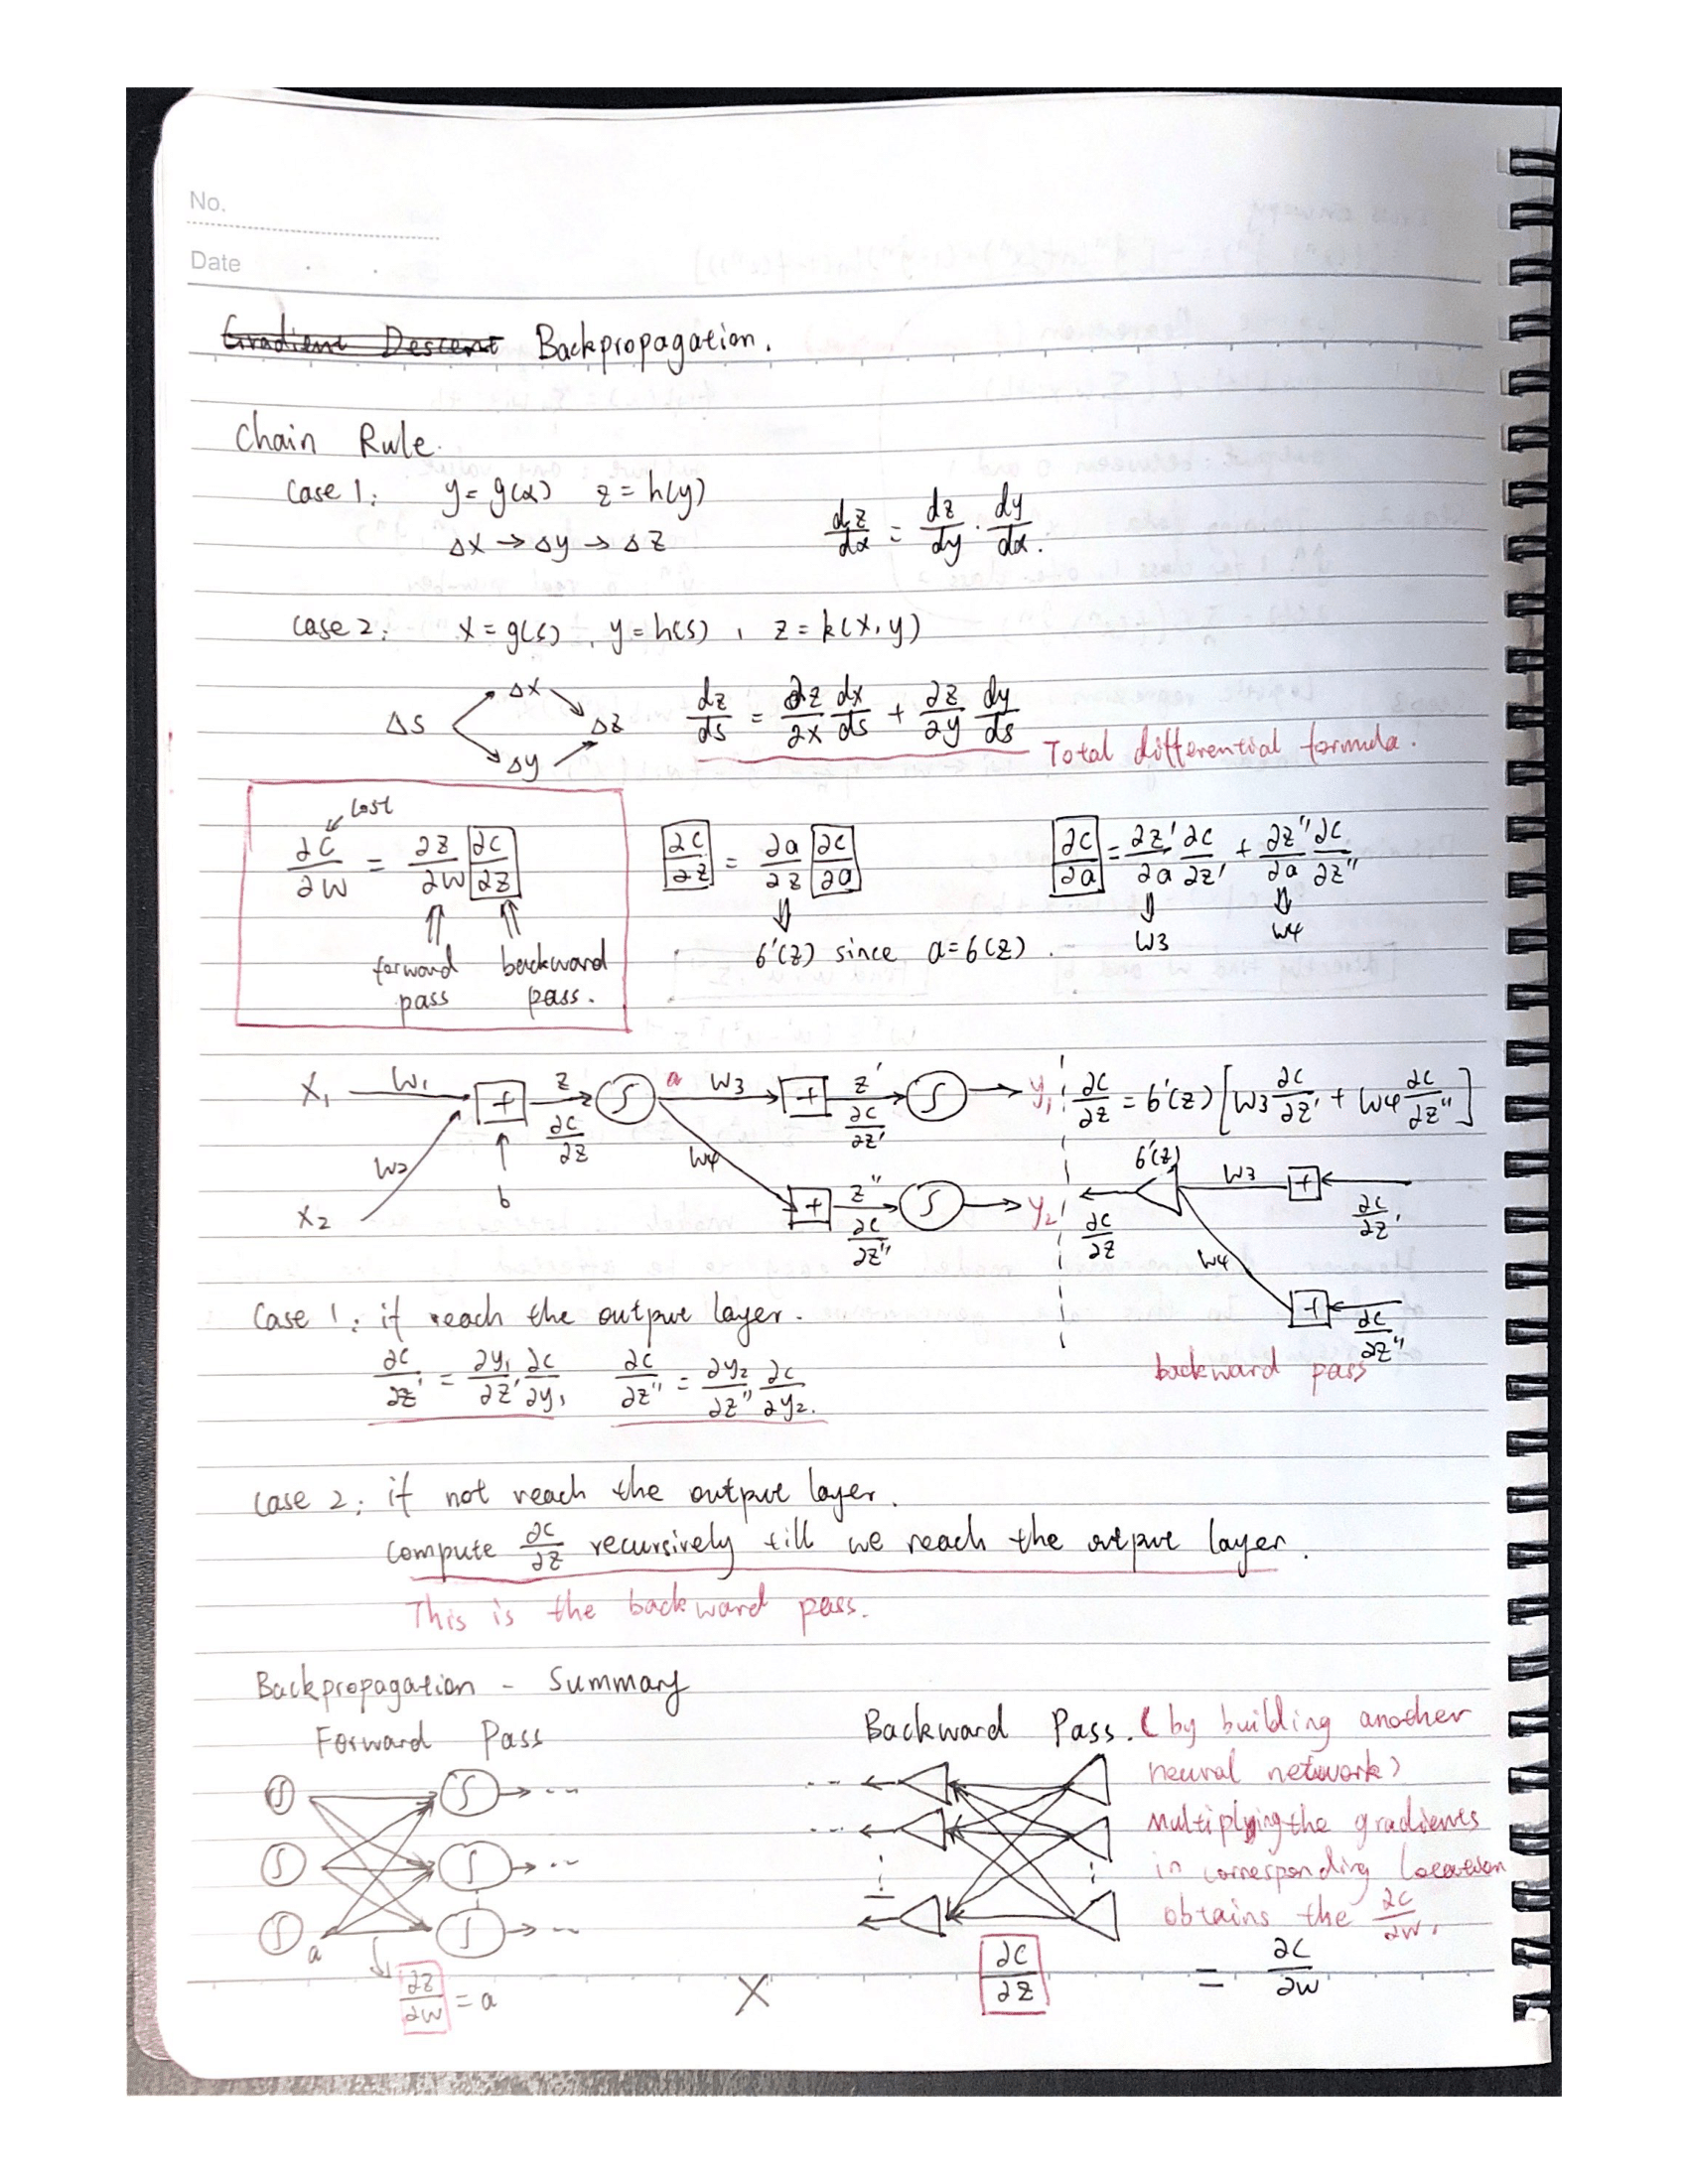 No.
Date
Gradient Descent Backpropagation.
Chain Rule.
Case 1: y=g(x) z=h(y)
Δx→Δy→Δz dz/dx = dz/dy · dy/dx.
Case 2: x=g(s), y=h(s), z=k(x,y)
Δs Δx Δy Δz dz/ds = ∂z/∂x dx/ds + ∂z/∂y dy/ds Total differential formula.
Cost
∂C/∂w = ∂z/∂w ∂C/∂z ∂C/∂z = ∂a/∂z ∂C/∂a ∂C/∂a = ∂z'/∂a ∂C/∂z' + ∂z''/∂a ∂C/∂z''
forward pass backward pass. σ'(z) since a=σ(z). w3 w4
x1 w1 + z ∂C/∂z ∫ a w3 + z' ∂C/∂z' ∫ y1 ∂C/∂z = σ'(z)[w3 ∂C/∂z' + w4 ∂C/∂z'']
x2 w2 b w4 + z'' ∂C/∂z'' ∫ y2 ∂C/∂z σ'(z) w3 + ∂C/∂z'
w4 + ∂C/∂z''
backward pass
Case 1: if reach the output layer.
∂C/∂z' = ∂y1/∂z' ∂C/∂y1 ∂C/∂z'' = ∂y2/∂z'' ∂C/∂y2.
Case 2: if not reach the output layer.
compute ∂C/∂z recursively till we reach the output layer.
This is the backward pass.
Backpropagation - Summary
Forward Pass
Backward Pass. (by building another
neural network)
Multiplying the gradients
in corresponding location
obtains the ∂C/∂w.
a
∂z/∂w = a × ∂C/∂z = ∂C/∂w